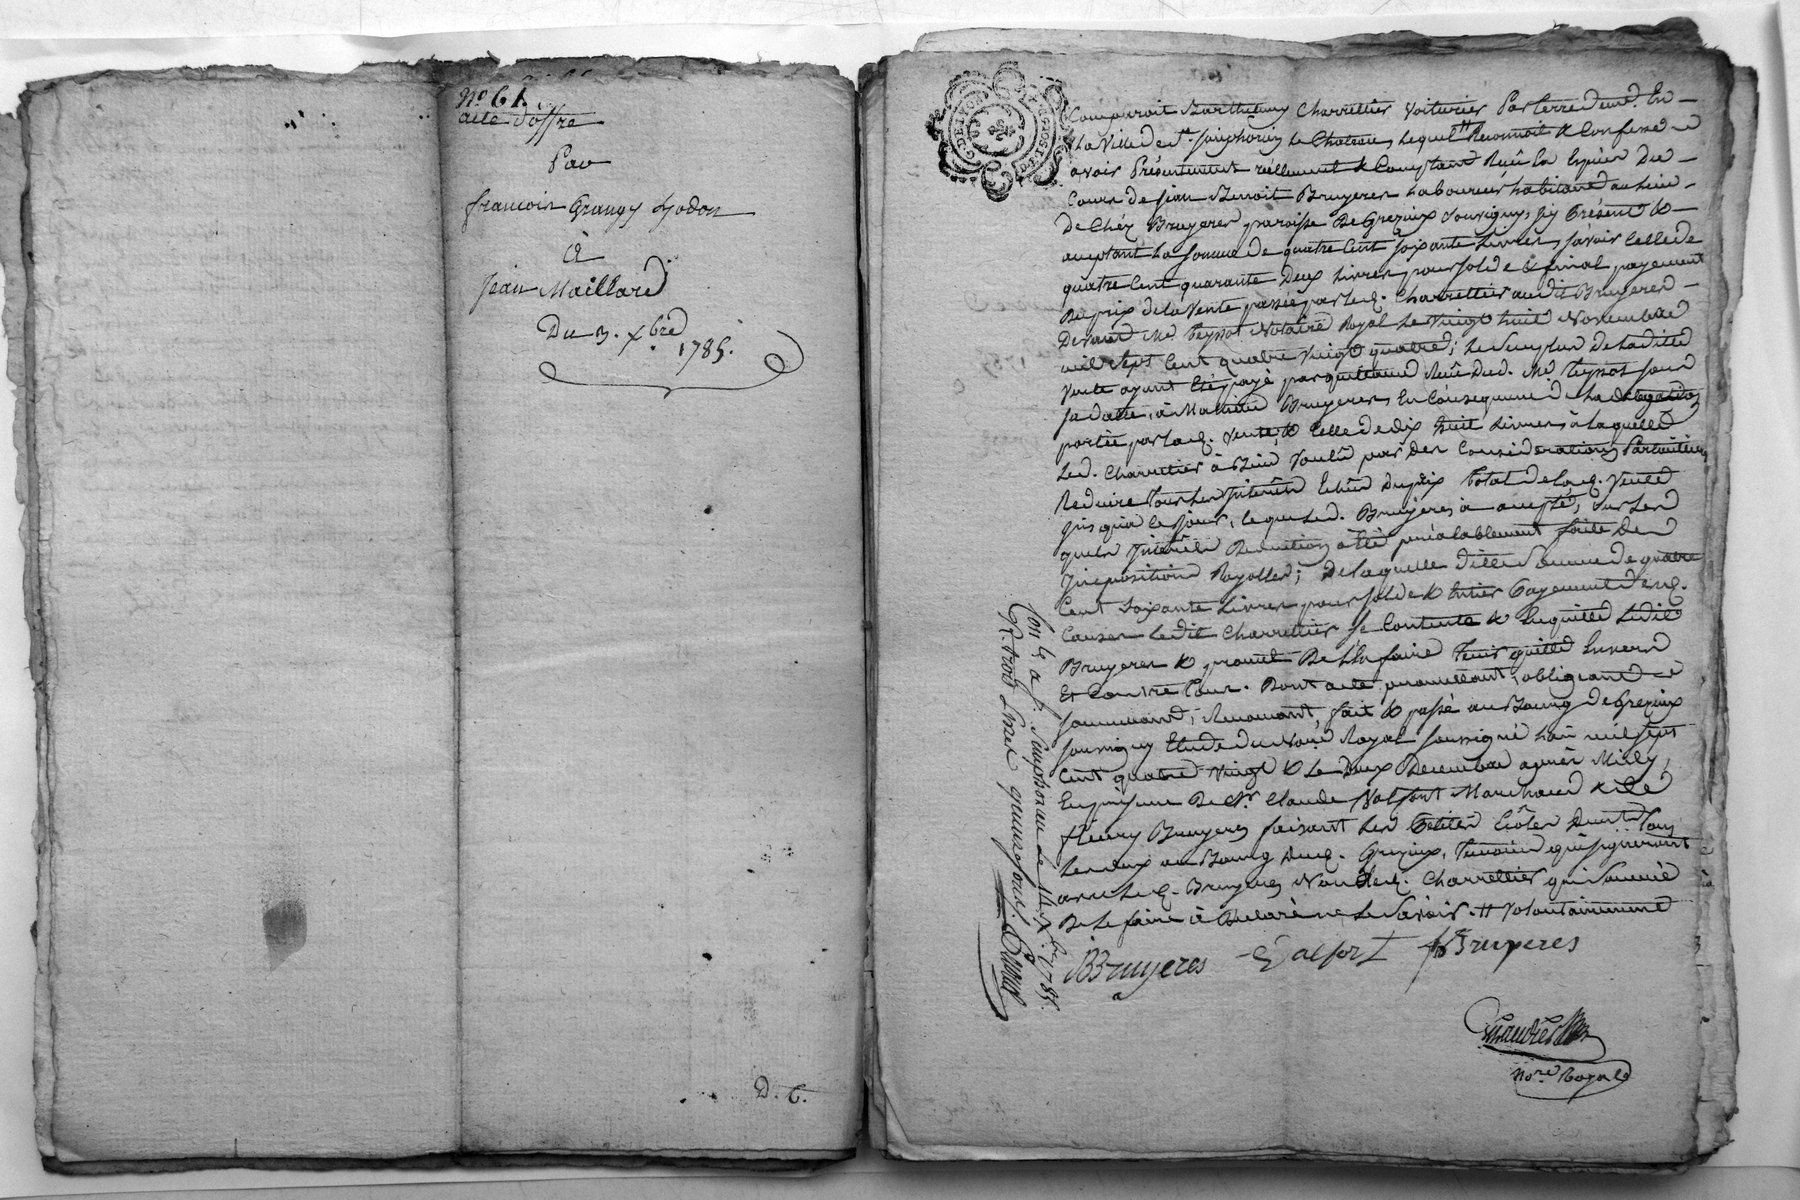 No. 61.
acte d'offre
Par
francois Grangy hodon
à
Jean Maillard
Du 3. xbre
1785.
D. C.
G. DE LYON
Comparoit Barthelemy Charrettier voiturier Par terre demt. En
La Ville de St. Simphorien Le Chateau, Lequel # Reconnoit & Confesse
avoir Présentement reellement & Comptant Reçû En Espèces Du
Cours de Jean Benoit Bruyeres Laboureur habitant au lieu
De Chéz Bruyeres paroisse De Grezieux Souvigny, jcy Présent &
acceptant La Somme de quatre Cent soixante Livres, savoir Celle de
quatre Cent quarante Deux Livres pour solde & final payement
Du prix de la Vente passée par led. Charrettier audit Bruyeres
Devant Me. Teyssot Notaire Royal Le Vingt huit Novembre
mil sept Cent quatre vingt quatre; Le Surplus De Laditte
Vente ayant Eté payé par quittance Reçûe Dud. Me. Teyssot sous
sa datte, à Mathieu Bruyeres, En Conséquence de La délégation
portée par lad. vente, & Celle de dix huit Livres à laquelle
Led. Charrettier à Bien Voulû par des Considerations Particulieres
Reduire tous Les Jnterêts Echûs Du prix Total de lad. Vente
jusqu'à Ce jour, Ce que Led. Bruyeres à accepté, sur Les
quels Jnterêts Reduction a Eté préalablement faite Des
Jmpositions Royalles; De laquelle Ditte Somme de quatre
Cent soixante Livres pour solde & Entier Payement Desd.
Causes Ledit Charrettier se Contente & En quitte Ledit
Bruyeres & promet De L'En faire tenir quitte Envers
Et Contre tous. Dont acte, promettant, obligeant
soumettant, Renonçant, fait & passé au Bourg de Grezieux
Souvigny Etude du Nore. Royal soussigné L'an mil sept
Cent quatre Vingt & Le Deux Decembre après Midy,
En presence De Sr. Claude Valfort Marchand & de
fleury Bruyeres faisant Les Petites Ecôles Demt. tous
Les deux au Bourg dud. Grezieux, temoins qui signeront
avec Led. Bruyeres Non Led. Charrettier qui sommé
De Le faire à Declaré ne Le Savoir. # Volontairement
JBBruyeres Valfort fBruyeres
Nore. Royal
Con. lé a St. Simphorien le 14 Xbre. 1785.
R. trois Livres quinze sous.